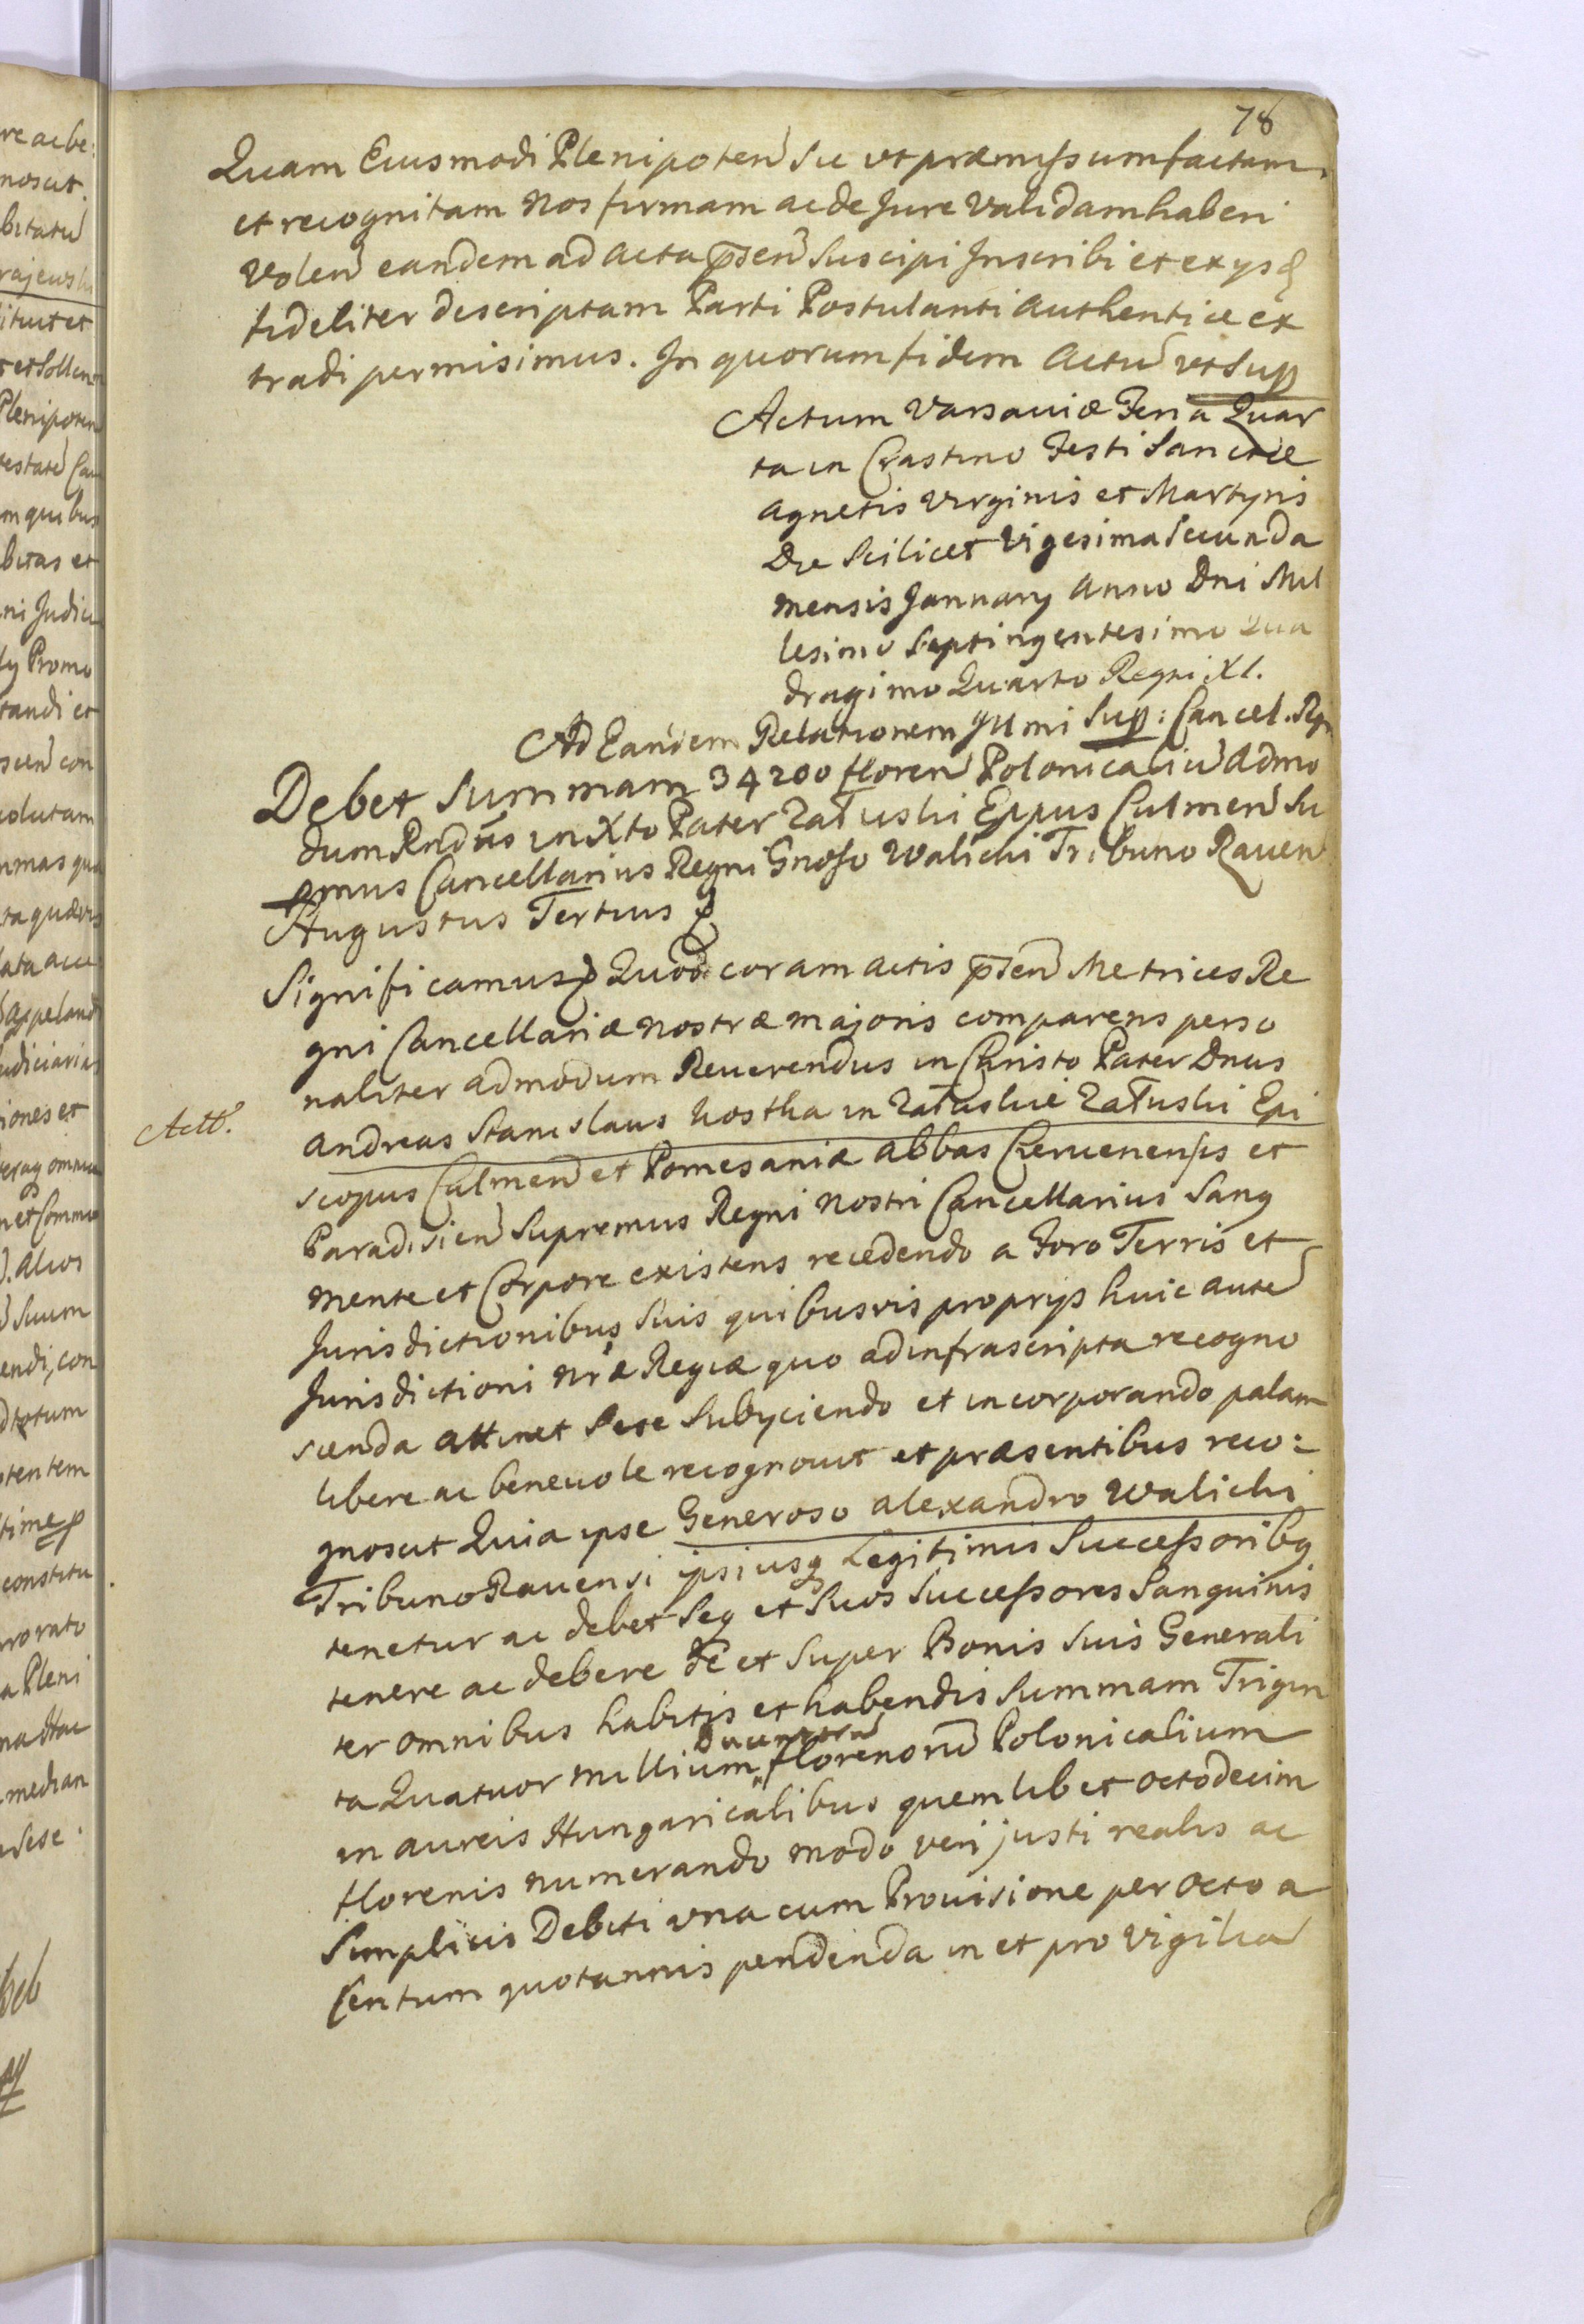 78
Quam Eiusmodi Plenipoten Sic ut præmissum factam
et recognitam Nos firmam ac de Jure Validam haberi
Volen eandem ad acta pnsen Suscipi Inscribi et ex ysq
fideliter descriptam Parti Postulanti Authentice ex
tradi permisimus. In quorum fidem Actu ut Sup
Actum Varsaviæ Feria Quar
ta in Crastino Festi Sanctæ
Agnetis Virginis et Martyris
Die Scilicet Vigesima Secunda
Mensis January Anno Dni Mil
lesimo Septingentesimo Qua
dragimo Quarto Regni XI.
Ad Eandem Relationem Illmi Sup: Cancel. Rgn
Debet Summam 34200 floren Polonicaliu Admo
dum Rndus in Xto Pater Załuski Eppus Culmen Su
pmus Cancellarius Regni Gnoso Walicki Tribuno Raven
Augustus Tertius &
Significamus & Quod coram actis pnsen Metrices Re
gni Cancellariæ Nostræ Majoris comparens perso
naliter Admodum Reverendus in Christo Pater Dnus
Actt.
Andreas Stanislaus Kostka in Załuskie Załuski Epi
scopus Culmen et Pomesaniæ Abbas Czervenensis et
Paradisien Supremus Regni Nostri Cancellarius Sang
Mente et Corpore existens recedendo a Foro Terris et
Jurisdictionibus Suis quibusvis proprys huic aute
Jurisdictioni Nræ Regiæ quo ad infrascripta recogno
scenda attinet Sese Subyciendo et incorporando palam
libere ac benevole recognovit et præsentibus reco:
gnoscit Quia ipse Generoso Alexandro Walicki
Tribuno Ravensi ipsiusq Legitimis Successoribq
tenetur ac debet Seq et Suos Successores Sanguinis
tenere ac debere de et Super Bonis Suis Generali
ter omnibus habitis et habendis Summam Trigin
Ducentoru
ta Quatuor Millium florenoru Polonicalium
in aureis Hungaricalibus quemlibet octodecim
florenis numerando modo veri justi realis ac
Simplicis Debiti una cum Provisione per octo a
Centum quotannis pendenda in et pro Vigilia